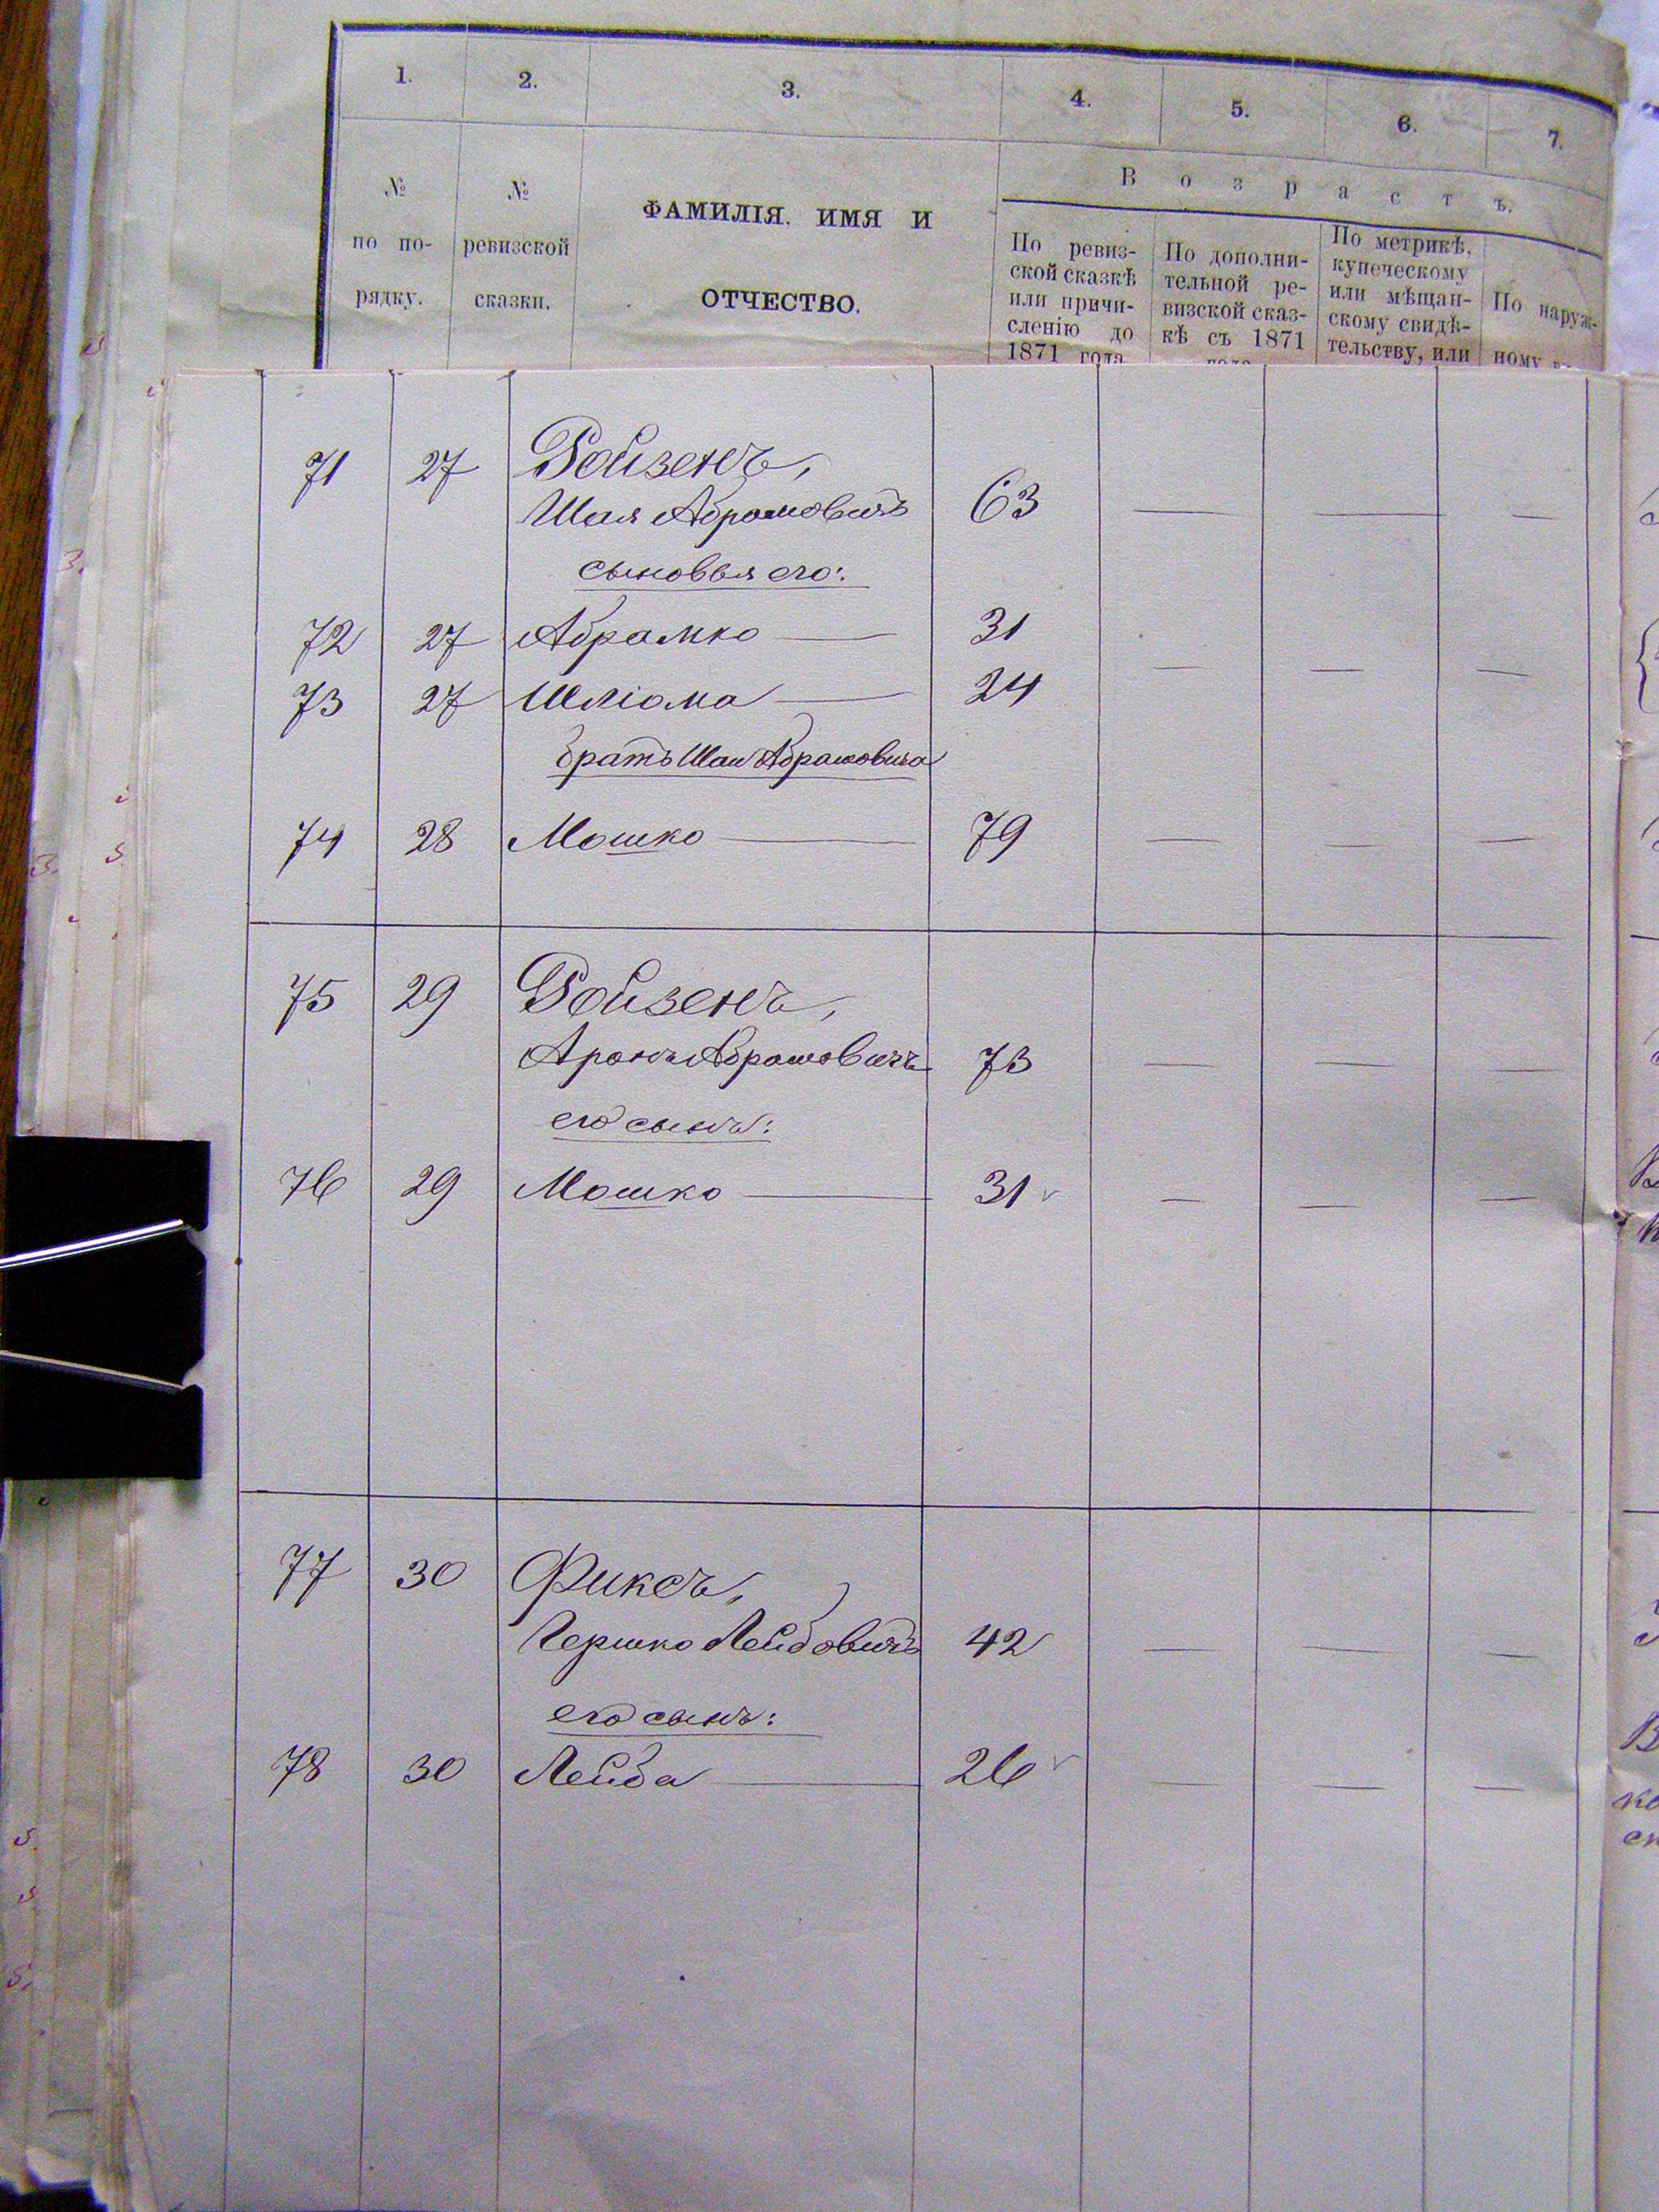 1. 2. 3. 4. 5. 6. 7.
В о з р а с т ъ.
№ по по-рядку.
№ ревизской сказки.
ФАМИЛІЯ, ИМЯ И
ОТЧЕСТВО.
По ревиз-
ской сказкѣ
или причи-
сленію до
1871 года
По дополни-
тельной ре-
визской сказ-
кѣ съ 1871
года
По метрикѣ,
купеческому
или мѣщан-
скому свидѣ-
тельству, или
По наруж-
ному
71 27 Ройзенъ,
Шая Абрамовичъ 63 — — —
сыновья его:
72 27 Абрамко — 31
73 27 Шліома — 24 — — —
братъ Шаи Абрамовича
74 28 Мошко — 79 — — —
75 29 Ройзенъ,
Аронъ Абрамовичъ 73 — — —
его сынъ:
76 29 Мошко — 31 — — —
77 30 Фиксъ,
Гершко Лейбовичъ 42 — — —
его сынъ:
78 30 Лейба — 26 — — —